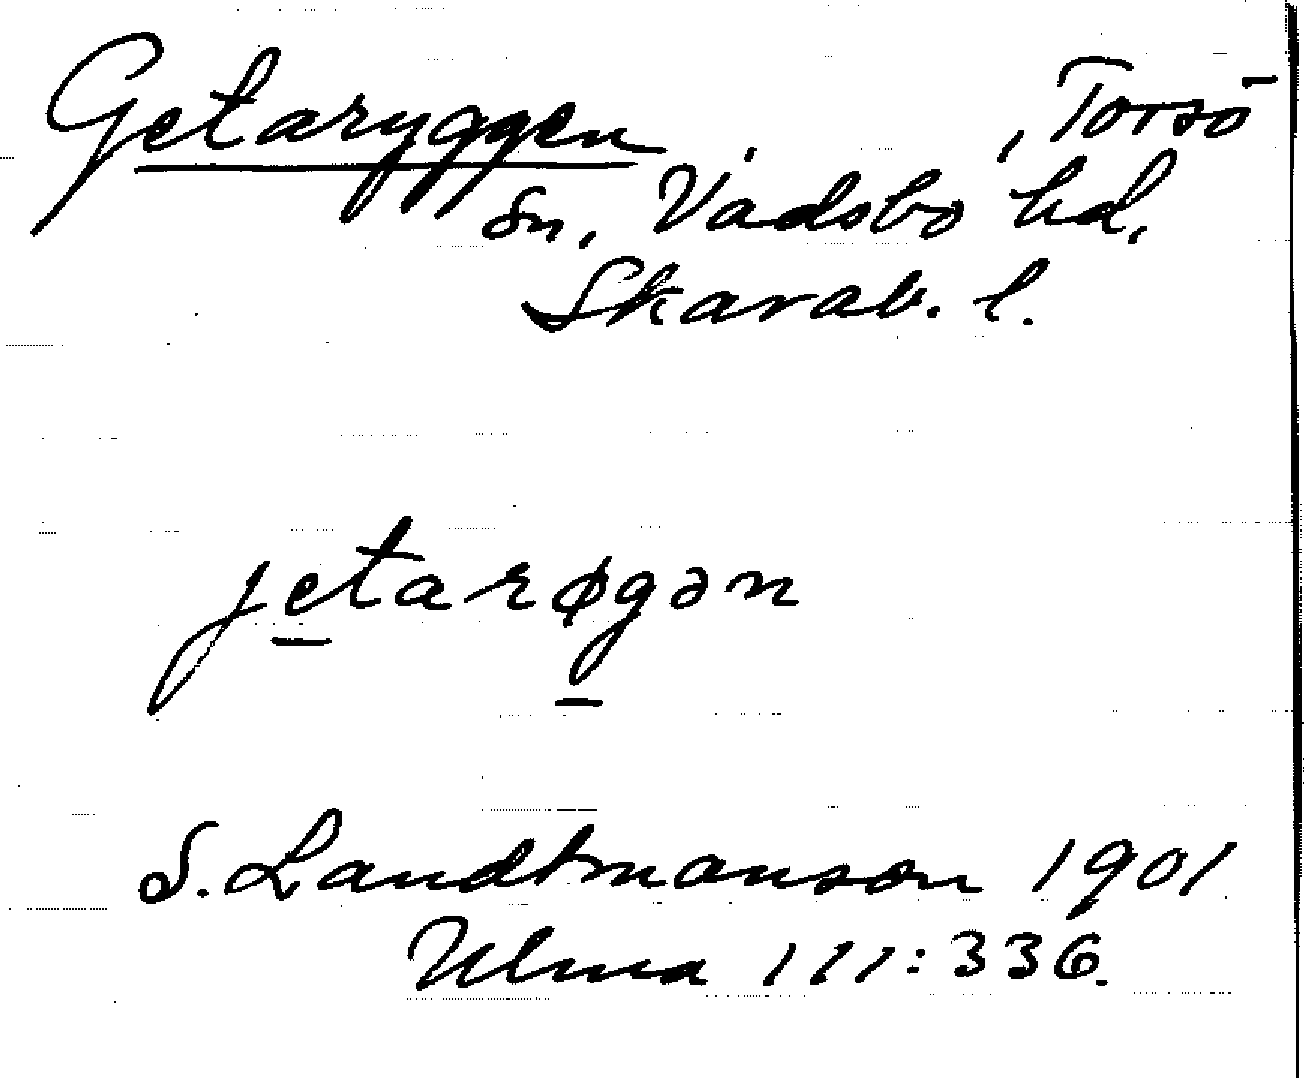 Getaryggen , Torsö
sn, Vadsbo hd,
Skarab. l.
jetarøgən
S. Landtmanson 1901
Ulma 111:336.